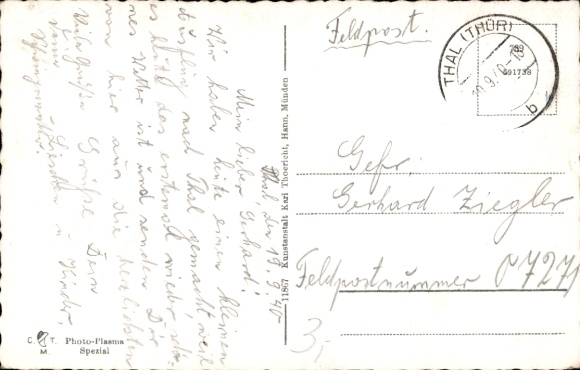 Feldpost.
THAL (THÜR)
19.9.40
b
789
591738
Gefr.
Gerhard Ziegler
Feldpostnummer 07271
3,-
Thal, den 19.9.40
Mein lieber Gerhard!
Wir haben heute einen kleinen
Ausflug nach Thal gemacht, weil
es heut das erstemal wieder schö-
nes Wetter ist und senden Dir
von hier aus die herzlichsten
Grüße Dein
Viele Grüße
Schwiegermutter.
u. Kinder.
11867 Kunstanstalt Karl Thoericht, Hann. Münden
C. T.
M.
Photo-Plasma
Spezial